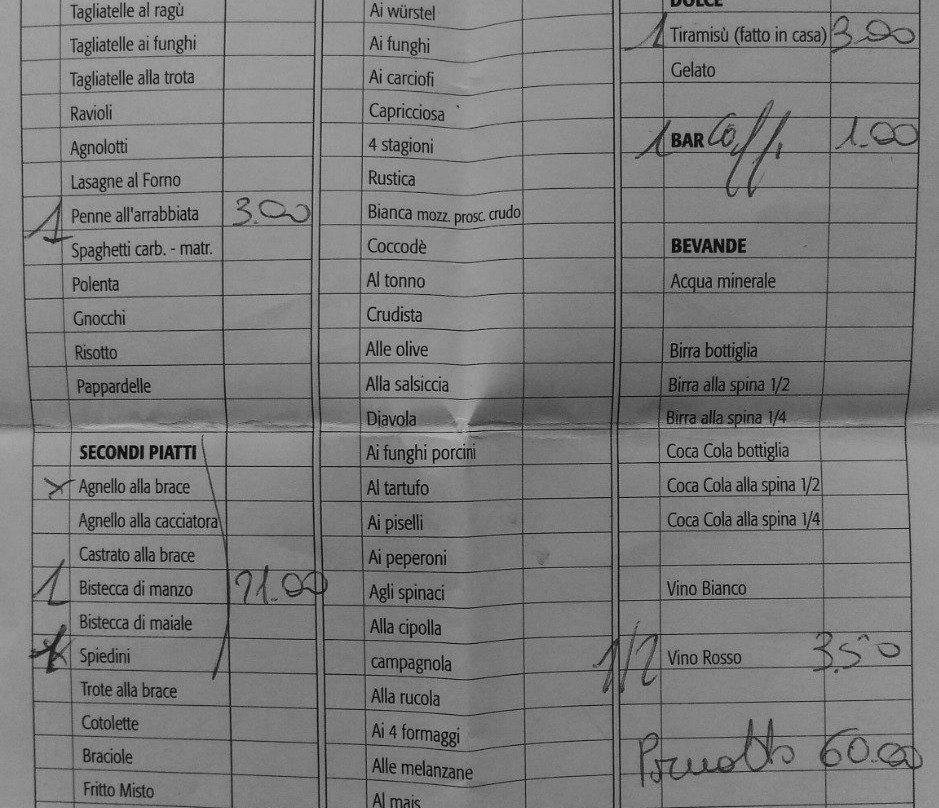 Tagliatelle al ragù
Tagliatelle ai funghi
Tagliatelle alla trota
Ravioli
Agnolotti
Lasagne al Forno
1 Penne all'arrabbiata 3.00
Spaghetti carb. - matr.
Polenta
Gnocchi
Risotto
Pappardelle
SECONDI PIATTI
Agnello alla brace
Agnello alla cacciatora
Castrato alla brace
1 Bistecca di manzo 21.00
Bistecca di maiale
Spiedini
Trote alla brace
Cotolette
Braciole
Fritto Misto
Ai würstel
Ai funghi
Ai carciofi
Capricciosa
4 stagioni
Rustica
Bianca mozz. prosc. crudo
Coccodè
Al tonno
Crudista
Alle olive
Alla salsiccia
Diavola
Ai funghi porcini
Al tartufo
Ai piselli
Ai peperoni
Agli spinaci
Alla cipolla
campagnola
Alla rucola
Ai 4 formaggi
Alle melanzane
Al mais
DOLCE
1 Tiramisù (fatto in casa) 3.00
Gelato
1 BAR 1.00
BEVANDE
Acqua minerale
Birra bottiglia
Birra alla spina 1/2
Birra alla spina 1/4
Coca Cola bottiglia
Coca Cola alla spina 1/2
Coca Cola alla spina 1/4
Vino Bianco
1/2 Vino Rosso 3.50
60.00